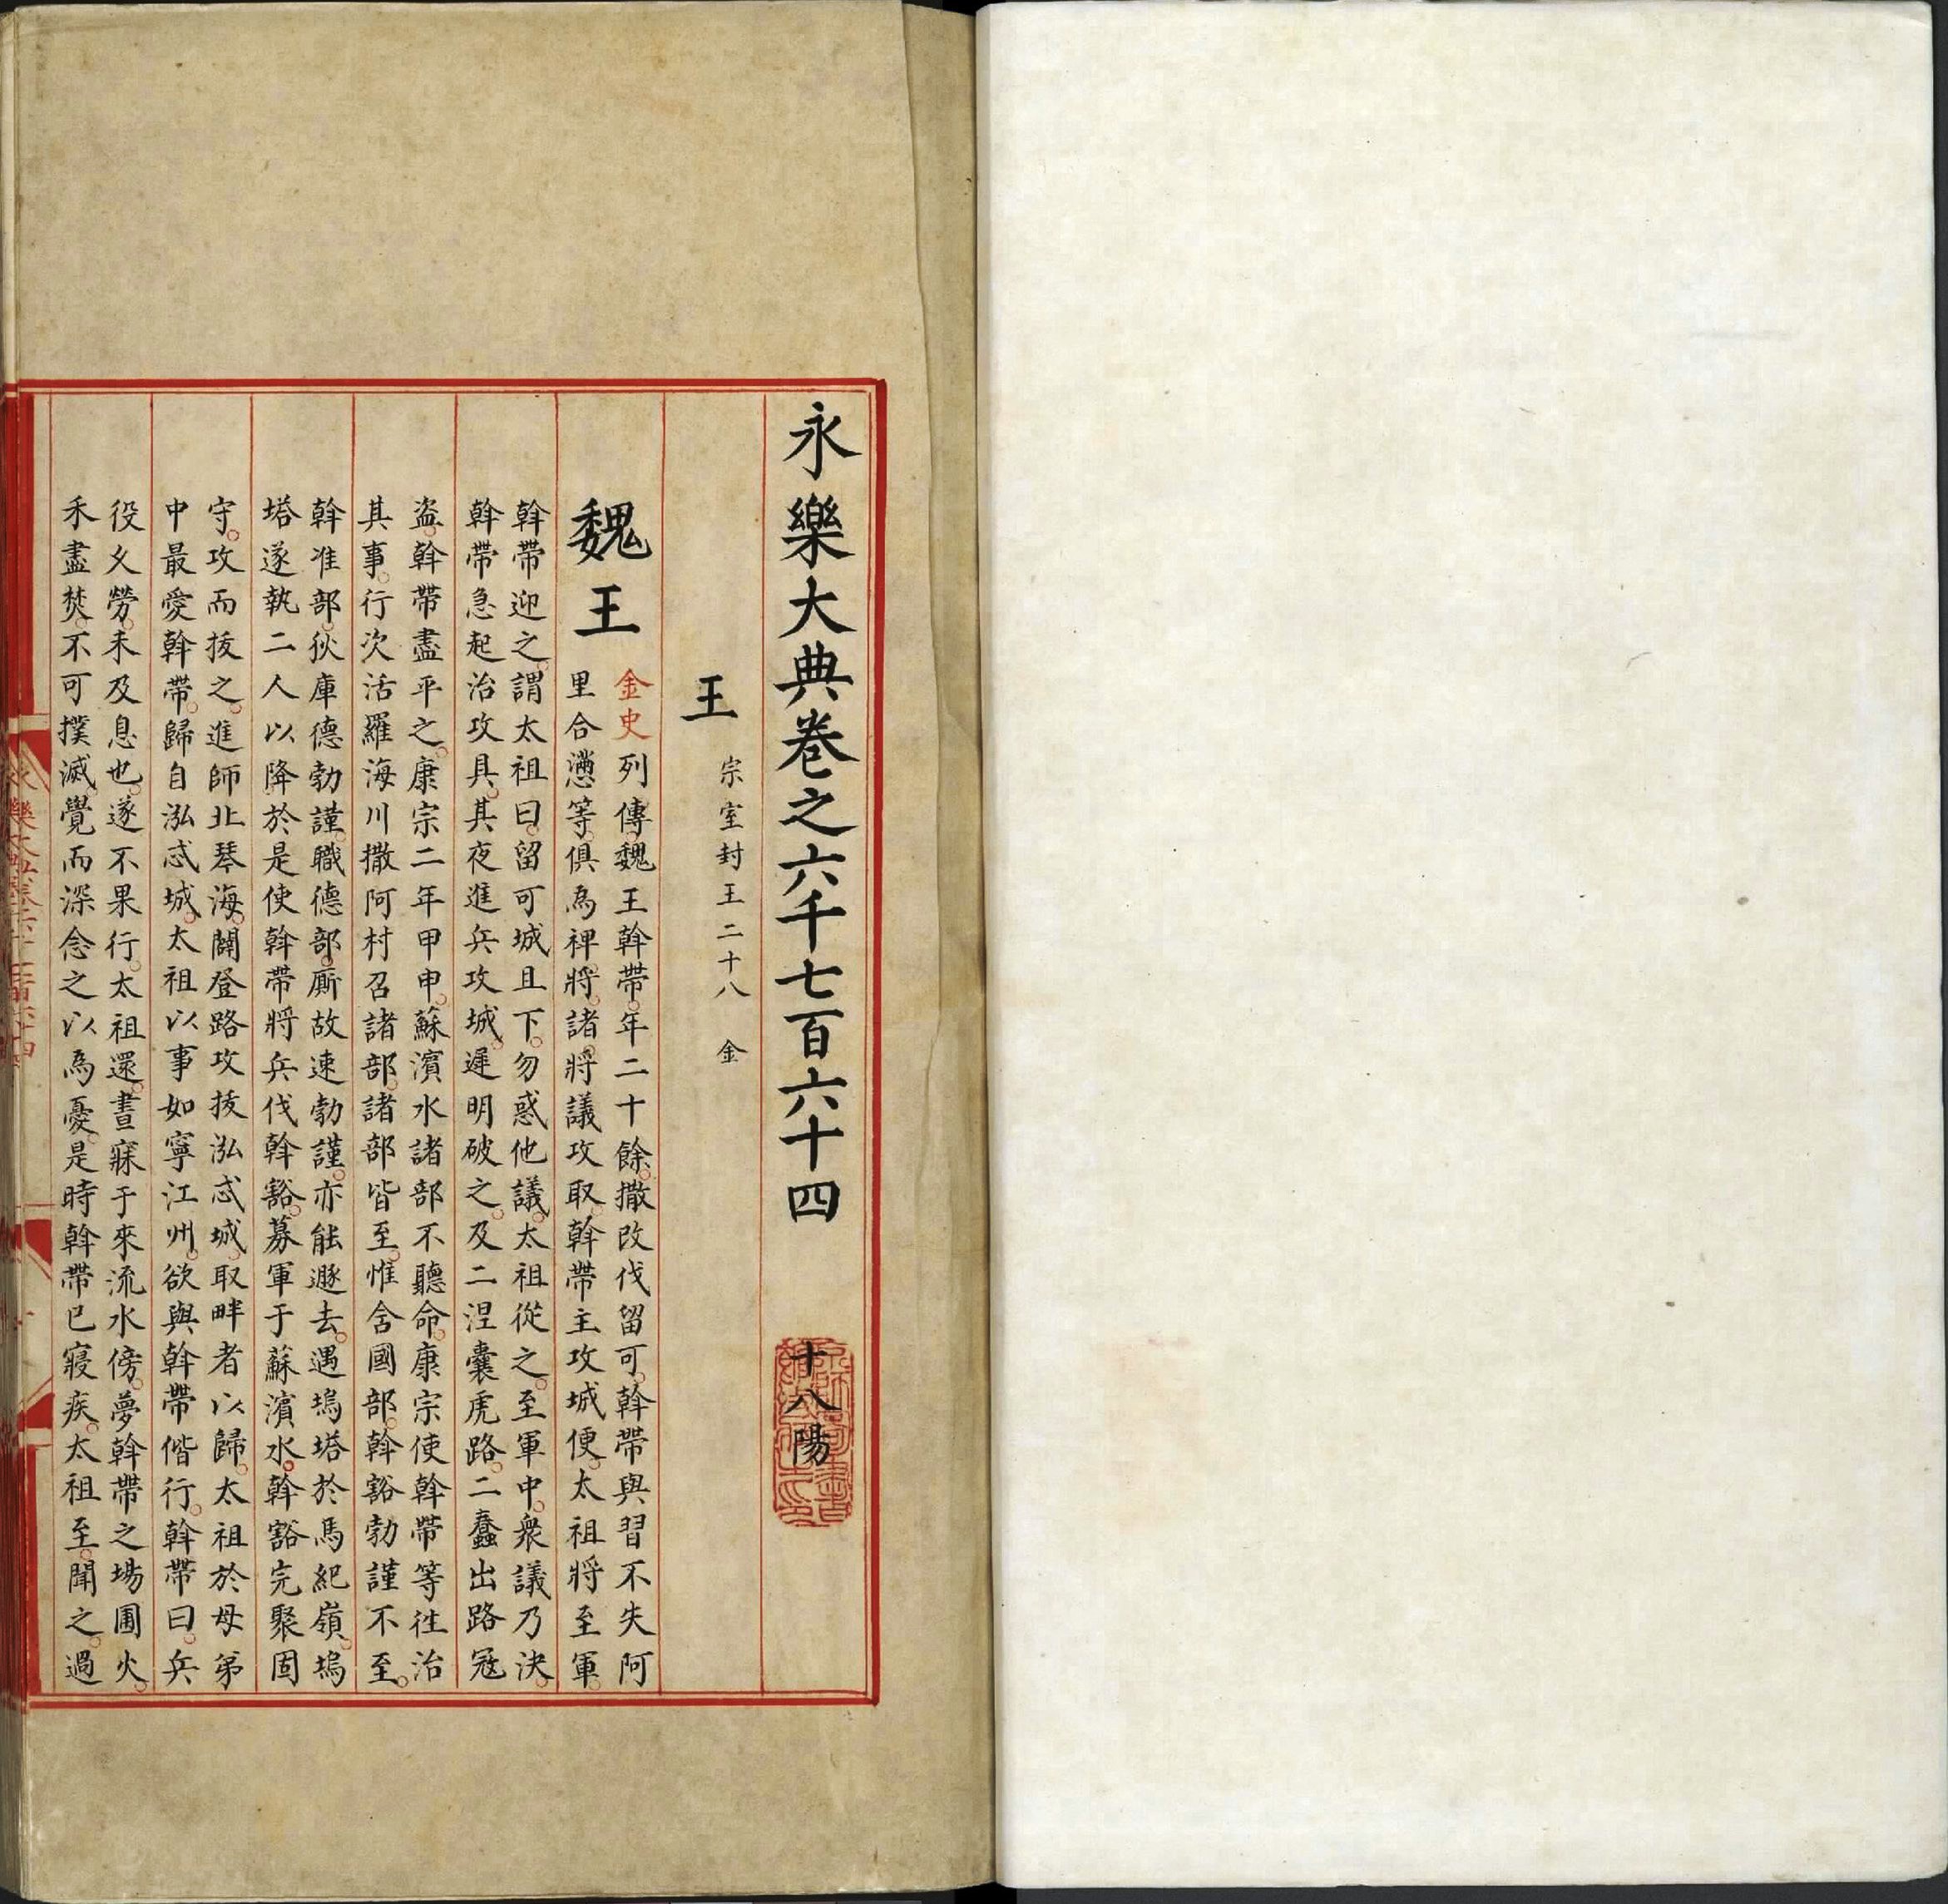 永樂大典卷之六千七百六十四 十八陽
王 宗室封王二十八 金
魏王 金史列傳魏王斡帶年二十餘撒改伐留可斡帶與習不失阿
里合懣等俱爲裨將諸將議攻取斡帶主攻城便太祖將至軍
斡帶迎之謂太祖曰留可城且下勿惑他議太祖從之至軍中衆議乃決
斡帶急起治攻具其夜進兵攻城遲明破之及二涅囊虎路二蠢出路寇
盜斡帶盡平之康宗二年甲申蘇濱水諸部不聽命康宗使斡帶等往治
其事行次活羅海川撒阿村召諸部諸部皆至惟含國部斡豁勃謹不至
斡准部狄庫德勃謹職德部廝故速勃謹亦能遯去遇塢塔於馬紀嶺塢
塔遂執二人以降於是使斡帶將兵伐斡豁募軍于蘇濱水斡豁完聚固
守攻而拔之進師北琴海闢登路攻拔泓忒城取畔者以歸太祖於母弟
中最愛斡帶歸自泓忒城太祖以事如寧江州欲與斡帶偕行斡帶曰兵
役久勞未及息也遂不果行太祖還晝寐于來流水傍夢斡帶之場圃火
禾盡焚不可撲滅覺而深念之以爲憂是時斡帶已寢疾太祖至聞之過